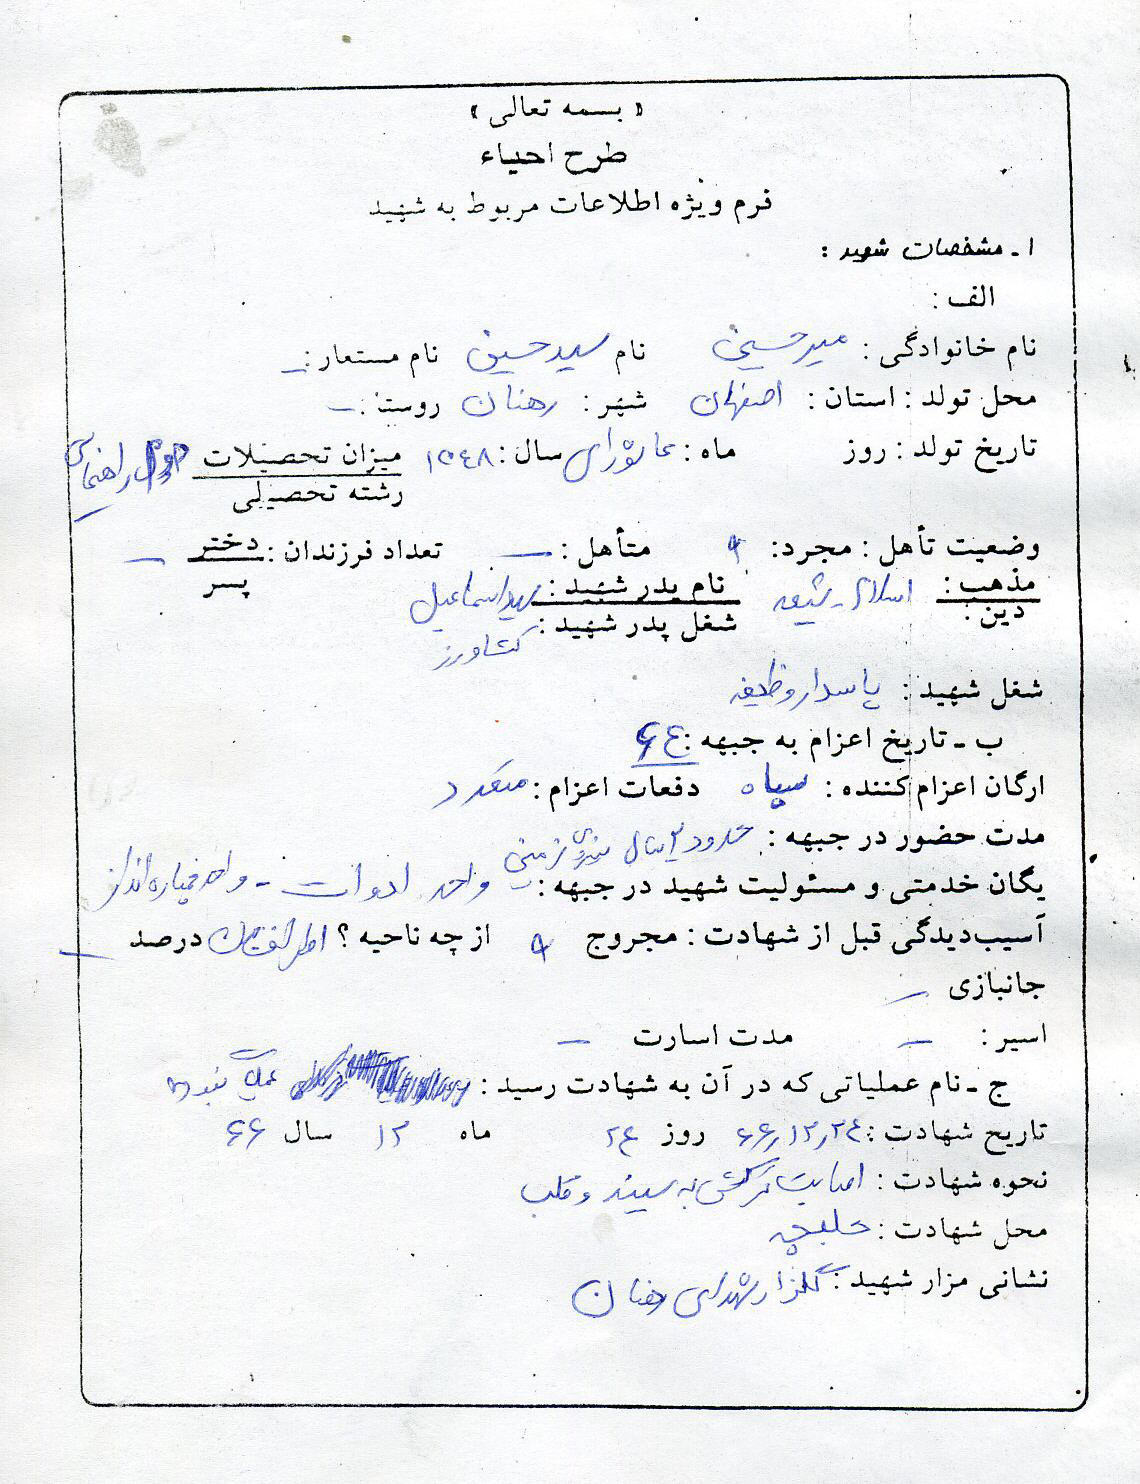 « بسمه تعالی »
طرح احیاء
فرم ویژه اطلاعات مربوط به شهید
۱ ـ مشخصات شهید :
الف :
نام خانوادگی : میرحسینی نام سیدحسین نام مستعار : ــ
محل تولد : استان : اصفهان شهر : رهنان روستا : ــ
تاریخ تولد : روز ماه : عاشورای سال : ۱۳۴۸ میزان تحصیلات راهنمایی
رشته تحصیلی
وضعیت تأهل : مجرد : متأهل : ــ تعداد فرزندان : دختر ــ
پسر
مذهب : اسلام ـ شیعه نام پدر شهید : سیداسماعیل
دین : شغل پدر شهید : کشاورز
شغل شهید : پاسدار وظیفه
ب ـ تاریخ اعزام به جبهه : ۶۴
ارگان اعزام کننده : سپاه دفعات اعزام : متعدد
مدت حضور در جبهه : حدود ۲ سال نیروی زمینی
یگان خدمتی و مسئولیت شهید در جبهه : واحد ادوات ـ واحد خمپاره انداز
آسیب‌دیدگی قبل از شهادت : مجروح از چه ناحیه ؟ درصد ــ
جانبازی ــ
اسیر : ــ مدت اسارت ــ
ج ـ نام عملیاتی که در آن به شهادت رسید : عملیات نبود
تاریخ شهادت : ۶۶٫۱۲٫۲۴ روز ۲۴ ماه ۱۲ سال ۶۶
نحوه شهادت : اصابت ترکش به سینه و قلب
محل شهادت : حلبچه
نشانی مزار شهید : گلزار شهدای رهنان